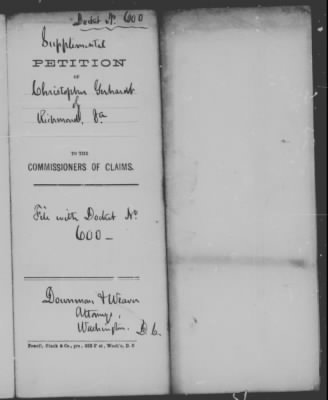 Docket No. 600
Supplemental
PETITION
OF
Christopher Gerhardt
of
Richmond, Va
TO THE
COMMISSIONERS OF CLAIMS.
File with Docket No
600—
Downman & Weaver
Attorneys,
Washington. D.C.
Powell, Ginck & Co., prs, 632 F st, Wash'n, D. C